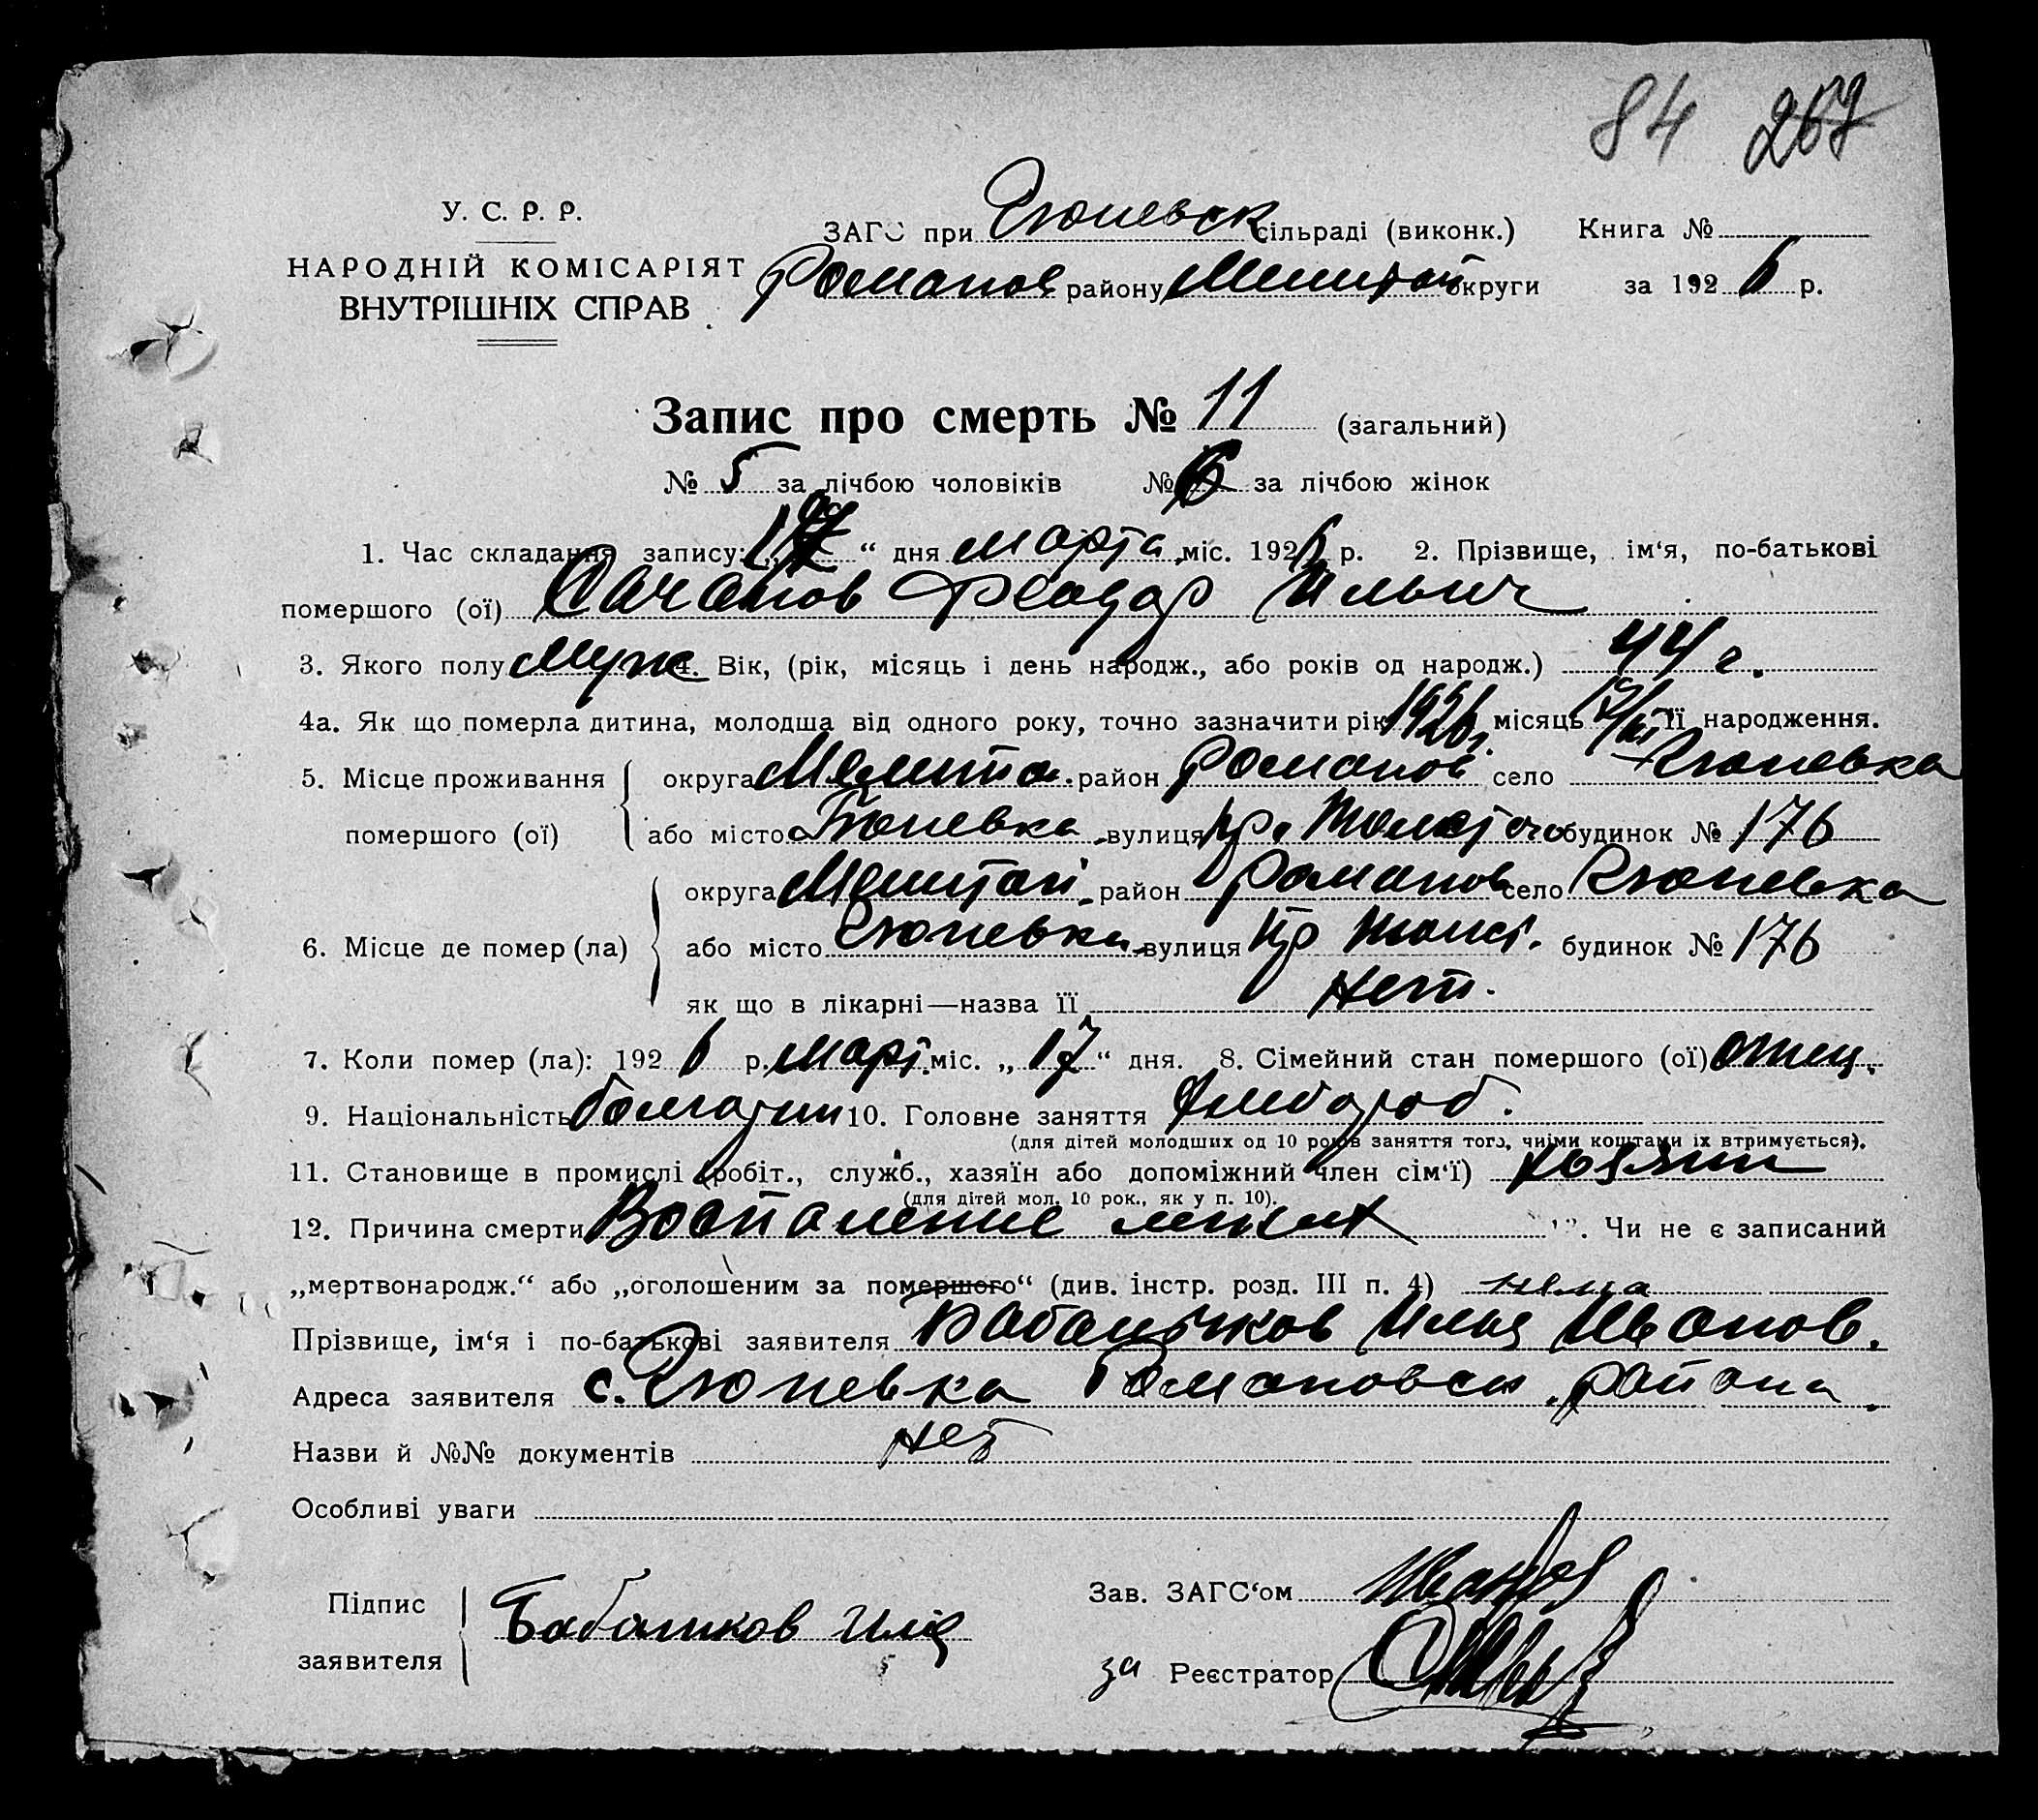 84 267
У. С. Р. Р.
НАРОДНІЙ КОМІСАРІЯТ
ВНУТРІШНІХ СПРАВ
ЗАГС при Гюневск сільраді (виконк.) Книга №
Романов району Мелитоп округи за 1926 р.
Запис про смерть № 11 (загальний)
№ 5 за лічбою чоловіків № 6 за лічбою жінок
1. Час складання запису: „ “ дня марта міс. 1926 р. 2. Прізвище, ім‘я, по-батькові
помершого (ої) Феодор Ильич
3. Якого полу Муж 4. Вік, (рік, місяць і день народж., або років од народж.) 44 г.
4а. Як що померла дитина, молодша від одного року, точно зазначити рік 1926г. місяць її народження.
5. Місце проживання округа Мелитоп. район Романов село Гюневка
помершого (ої) або місто Гюневка вулиця пр. Толстого будинок № 176
округа Мелитоп район Романов село Гюневка
6. Місце де помер (ла) або місто Гюневка вулиця пр Толст. будинок № 176
як що в лікарні—назва її Нет.
7. Коли помер (ла): 1926 р. март. міс. „17“ дня. 8. Сімейний стан помершого (ої) отец.
9. Національність болгарин 10. Головне заняття Хлебороб.
(для дітей молодших од 10 років заняття того, чиїми коштами їх втримується).
11. Становище в промислі (робіт., служб., хазяїн або допоміжний член сім‘ї) хозяин
(для дітей мол. 10 рок., як у п. 10).
12. Причина смерти Воспаление легких . Чи не є записаний
„мертвонародж.“ або „оголошеним за помершого“ (див. інстр. розд. III п. 4) нема
Прізвище, ім‘я і по-батькові заявителя Илья Иванов.
Адреса заявителя с. Гюневка Романовск. района.
Назви й №№ документів нет
Особливі уваги
Підпис
заявителя Илія
Зав. ЗАГС‘ом
за Реєстратор